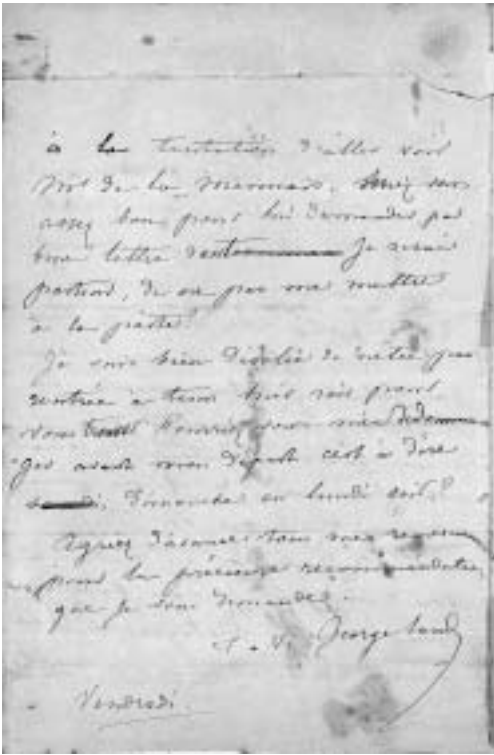 à la tentation d'aller voir
Mr de la Mennais. Soyez
assez bon pour lui demander par
une lettre Je serai
partout, de ne pas me mettre
à la porte.
Je suis bien désolée de n'être pas
rentrée à tems hier soir pour
vous Pourriez vous me
avant mon départ c'est à dire
dimanche ou lundi soir?
Agréez d'avance tous mes
pour la précieuse recommandation
que je vous demande.
George Sand
Vendredi.